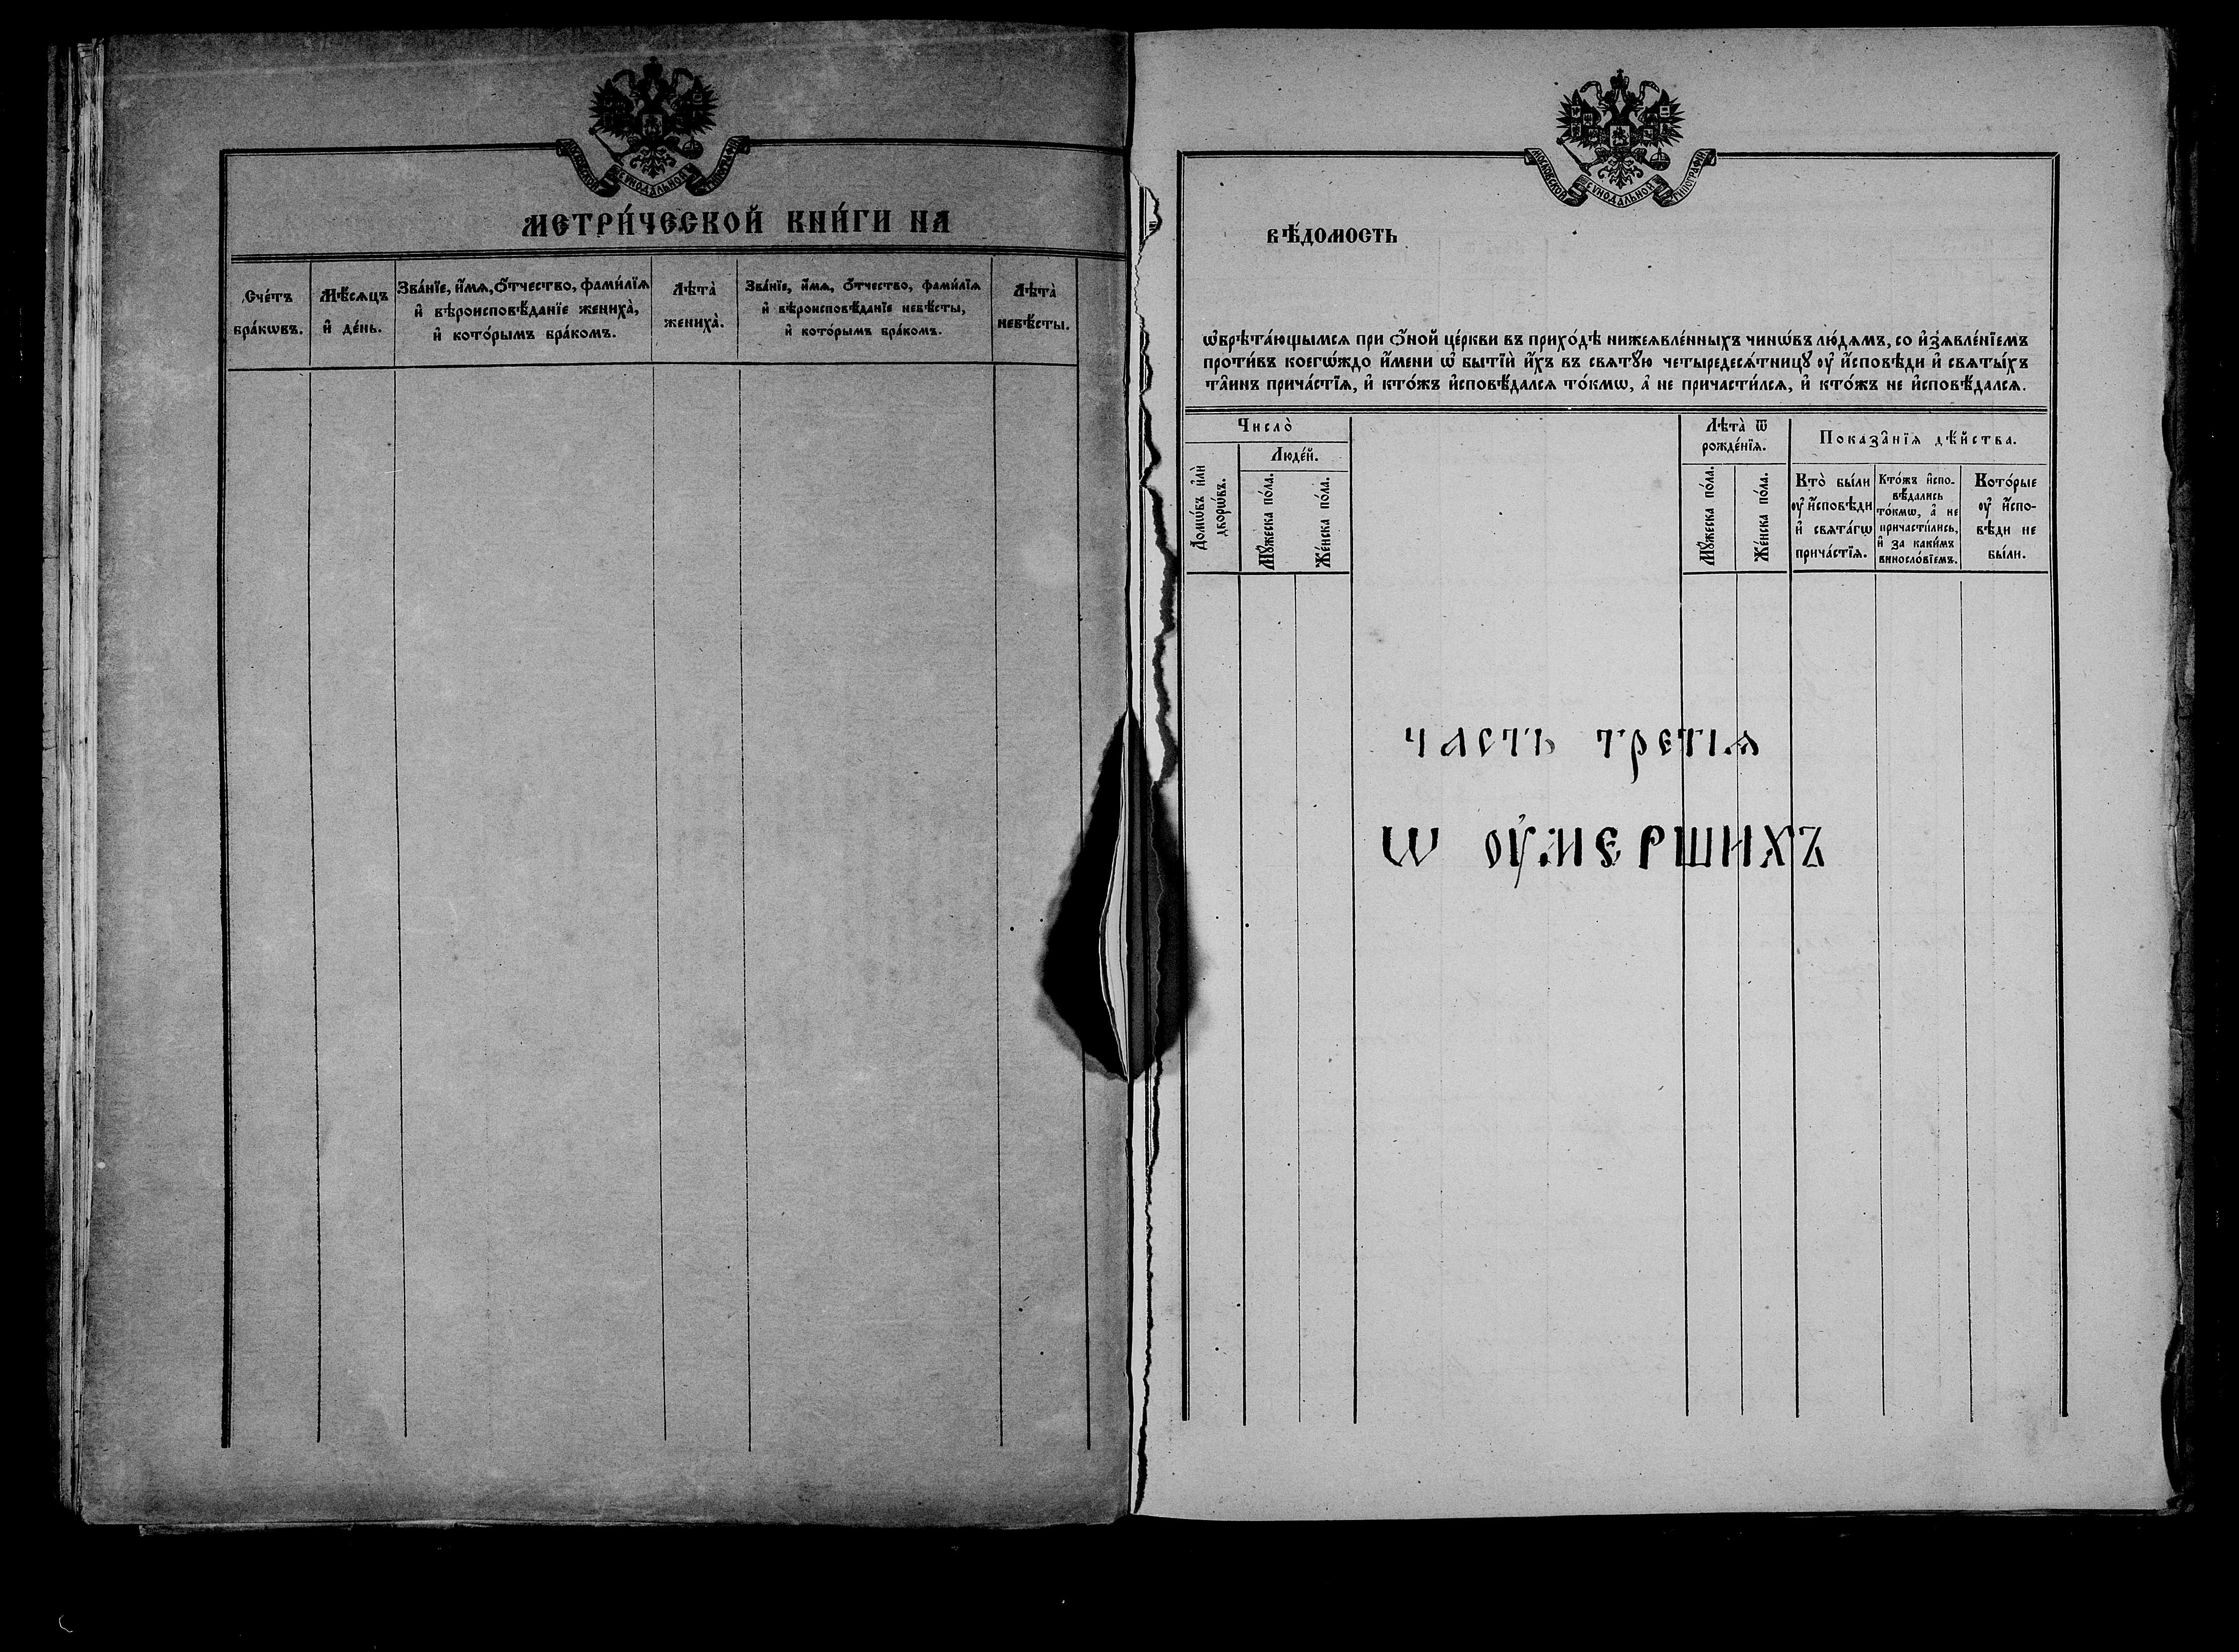 МОСКОВСКОЙ СѴНОДАЛЬНОЙ ТИПОГРАФІИ
МЕТРИ́ЧЕСКОЙ КНИ́ГИ НА
Сче́тъ
бра́кѡвъ.
Мѣ́сѧцъ
и҆ де́нь.
Зва́нїе, и҆́мѧ, ѻ҆́тчество, фами́лїѧ
и҆ вѣроисповѣ́данїе жениха̀,
и҆ кото́рымъ бра́комъ.
Лѣта̀
жениха̀.
Зва́нїе, и҆́мѧ, ѻ҆́тчество, фами́лїѧ
и҆ вѣроисповѣ́данїе невѣ́сты,
и҆ кото́рымъ бра́комъ.
Лѣта̀
невѣ́сты.
МОСКОВСКОЙ СѴНОДАЛЬНОЙ ТИПОГРАФІИ
вѣ́домость
ѡ҆брѣта́ющымсѧ при ѻ҆́ной це́ркви въ прихо́дѣ нижеѧвле́нныхъ чинѡ́въ лю́дѧмъ, со и҆зѧвле́нїемъ
проти́въ коегѡ́ждо и҆́мени ѡ҆ бытїѝ и҆́хъ въ свѧтꙋ́ю четыредесѧ́тницꙋ ᲂу҆ и҆́сповѣди и҆ свѧты́хъ
та̑инъ прича́стїѧ, и҆ кто́жъ и҆сповѣ́далсѧ то́кмѡ, а҆ не причасти́лсѧ, и҆ кто́жъ не и҆сповѣ́далсѧ.
Число̀
Домѡ́въ и҆лѝ
дворѡ́въ.
Люде́й.
Мꙋ́жеска по́ла.
Же́нска по́ла.
Лѣта̀ ѿ
рожде́нїѧ.
Мꙋ́жеска по́ла.
Же́нска по́ла.
Показа̑нїѧ дѣ́йства.
Кто̀ бы́ли
ᲂу҆ и҆́сповѣди
и҆ свѧта́гѡ
прича́стїѧ.
Кто́жъ и҆спо-
вѣ́дались
то́кмѡ, а҆ не
причасти́лись,
и҆ за каки́мъ
винослові́емъ.
Кото́рые
ᲂу҆ и҆́спо-
вѣди не
бы́ли.
часть третїѧ
ѡ ᲂумершихъ